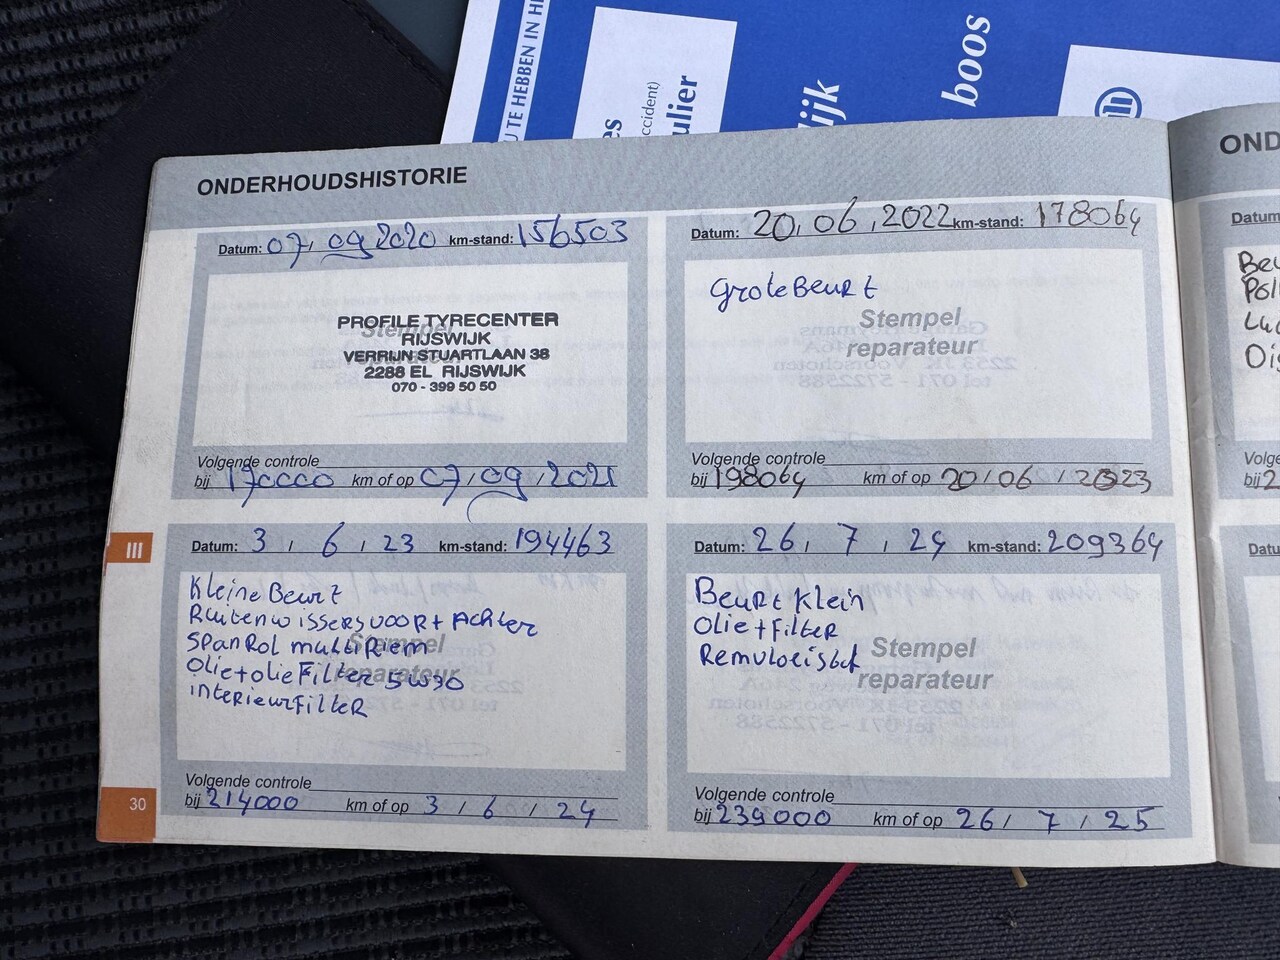 U TE HEBBEN IN HE
es
ccident)
ulier
lijk
boos
ONDERHOUDSHISTORIE
Datum: 07, 09 2020 km-stand: 156503
PROFILE TYRECENTER
Stempel
RIJSWIJK
VERRIJN STUARTLAAN 38
2288 EL RIJSWIJK
070 - 399 50 50
Volgende controle
bij 170000 km of op 07/09/2021
Datum: 20, 06, 2022 km-stand: 178064
Grote Beurt
Stempel
reparateur
Volgende controle
bij 198064 km of op 20/06/2023
III
Datum: 3 / 6 / 23 km-stand: 194463
Kleine Beurt
Ruitenwissers voor + Achter
Spanrol multiriem
Stempel
Olie + olie Filter 5W30
reparateur
interieurfilter
Volgende controle
bij 214000 km of op 3 / 6 / 24
Datum: 26, 7, 24 km-stand: 209364
Beurt Klein
Olie + Filter
Remvloeistof
Stempel
reparateur
Volgende controle
bij 239000 km of op 26 / 7 / 25
30
OND
Datum
Beu
Pol
Volge
bij 2
Datu